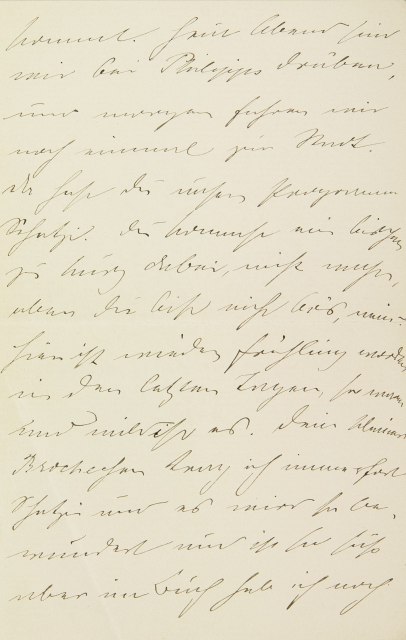 kommt. Heut Abend sind
wir bei Philipps drüben,
und morgen fahren wir
noch einmal zur Stadt.
Da hast du unser Programm
Schatzi. Du kommst ein bischen
zu kurz dabei, nicht wahr,
aber du bist nicht bös, nein.
hier ist wieder Frühling worden
in den letzten Tagen, so warm
und mild ist es. Dein kleines
Brochechen trag ich immerfort
Schatzi und es wird so be¬
wundert und ist so süß
aber im Buch hab ich noch